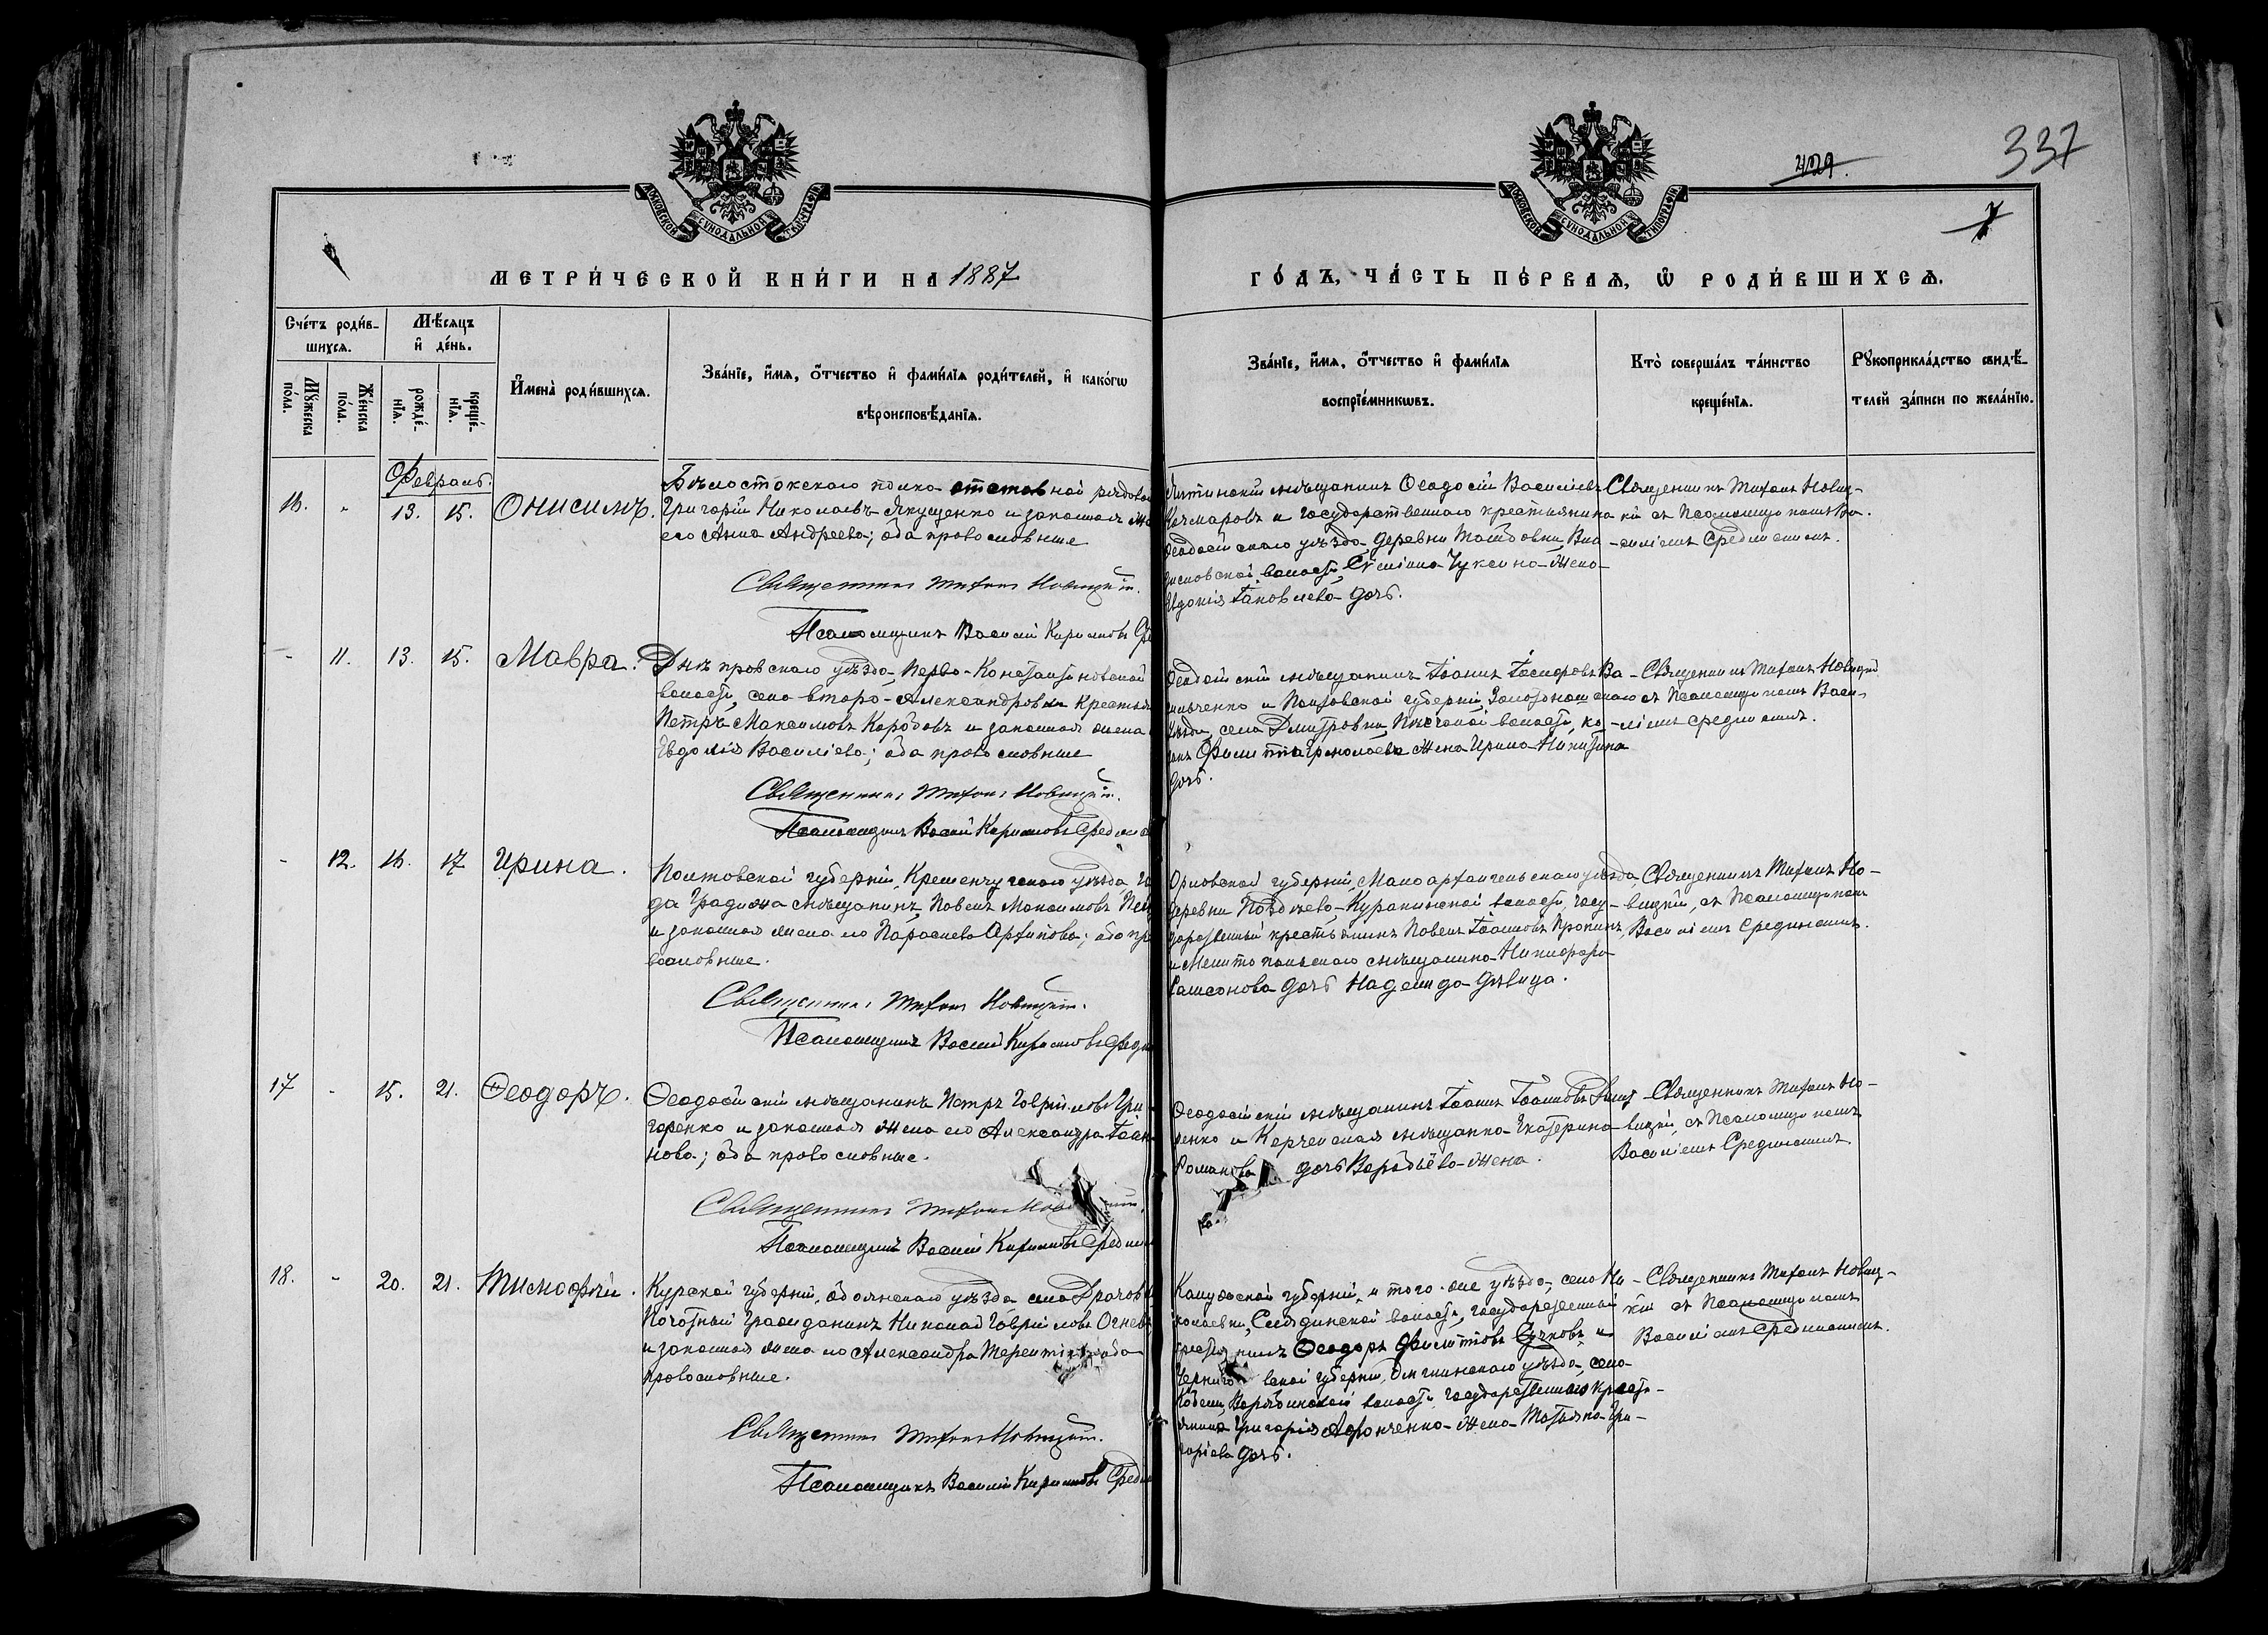 337
МОСКОВСКОЙ СѴНОДАЛЬНОЙ ТѴПОГРАФІИ
МОСКОВСКОЙ СѴНОДАЛЬНОЙ ТѴПОГРАФІИ
МЕТРИ́ЧЕСКОЙ КНИ́ГИ НА 1887
ГО́ДЪ, ЧА́СТЬ ПЕ́РВАЯ, Ѡ РОДИ́ВШИХСЯ.
Сче́тъ роди́в-
шихся.
Мѣ́сяцъ
и҆ де́нь.
Мꙋ́жеска
по́ла.
Же́нска
по́ла.
рожде́-
нїя.
креще́-
нїя.
И҆мена̀ роди́вшихся.
Зва́нїе, и҆́мя, ѻ҆́тчество и҆ фами́лїя роди́телей, и҆ како́гѡ
вѣроисповѣ́данїя.
Зва́нїе, и҆́мя, ѻ҆́тчество и҆ фами́лїя
воспрїе́мникѡвъ.
Кто̀ соверша́лъ та́инство
креще́нїя.
Рꙋкоприкла́дство свидѣ́-
телей за́писи по жела́нїю.
Февраль.
16. - 13. 15. Онисимъ.
Бѣлостокскаго полка отставной рядовой
Григорій Николаевъ Якущенко и законная же
его Анна Андреева; оба православные
Священникъ Тихонъ Новицкій.
Псаломщикъ Василій Кириловъ
мѣщанинъ Ѳеодосій Васильевъ
и государственнаго крестьянина
Ѳеодосійскаго уѣзда, деревни
волости, жена
Евдокія Іаковлева дочь.
Священникъ Тихонъ Новиц-
кій съ Псаломщикомъ Ва-
силіемъ Срединскимъ.
- 11. 13. 15. Мавра.
Днѣпровскаго уѣзда, Перво-Константиновской
волости, села Второ-Александровки крестьян
Петръ Максимовъ Коробовъ и законная жена
Евдокія Васильева; оба православные
Священникъ Тихонъ Новицкій.
Псаломщикъ Василій Кириловъ Средин
Ѳеодосійскій мѣщанинъ Іоаннъ
и Полтавской губерніи, Золотоношскаго
уѣзда, села Дмитровки, волости, ка-
жена Ирина Никитина
дочь.
Священникъ Тихонъ Новицкій
съ Псаломщикомъ Васи-
ліемъ Срединскимъ.
- 12. 16. 17 Ирина.
Полтавской губерніи, Кременчугскаго уѣзда, го
да Градижска мѣщанинъ Павелъ Максимовъ
и законная жена его Параскева Архипова; оба пра
вославные.
Священникъ Тихонъ Новицкій.
Псаломщикъ Василій Кириловъ Средин
Орловской губерніи, Малоархангельскаго уѣзда,
деревни Куракинской волости, госу-
дарственный крестьянинъ Павелъ Іоанновъ
и Мелитопольскаго мѣщанина Никифора
дочь Надежда дѣвица.
Священникъ Тихонъ Но-
вицкій, съ Псаломщикомъ
Василіемъ Срединскимъ.
17 - 15. 21. Ѳеодоръ.
Ѳеодосійскій мѣщанинъ Петръ Гавріиловъ Гри-
горенко и законная жена его Александра Іоан-
нова; оба православные.
Священникъ Тихонъ Нов
Псаломщикъ Василій Кириловъ Средин
Ѳеодосійскій мѣщанинъ Іоаннъ Іоанновъ
и Керченская мѣщанка Екатерина
Романова дочь Воробьёва жена.
Священникъ Тихонъ Но-
вицкій, съ Псаломщикомъ
Василіемъ Срединскимъ
18. - 20. 21. Тимоѳей.
Курской губерніи, Обоянскаго уѣзда села
Почотный Гражданинъ Николай Гавріиловъ Огневъ
и законная жена его Александра Терентіева; оба
православные.
Священникъ Тихонъ Новицкій.
Псаломщикъ Василій Кириловъ Средин
Калужской губерніи, и того-же уѣзда, села Ни-
колаевки, волости, государственный
крестьянинъ Ѳеодоръ Филиповъ и
Черниговской губерніи, уѣзда, села
волости государственнаго кресть-
янина Григорія жена Татьяна Гри-
горіева дочь.
Священникъ Тихонъ Новиц-
кій съ Псаломщикомъ
Василіемъ Срединскимъ.